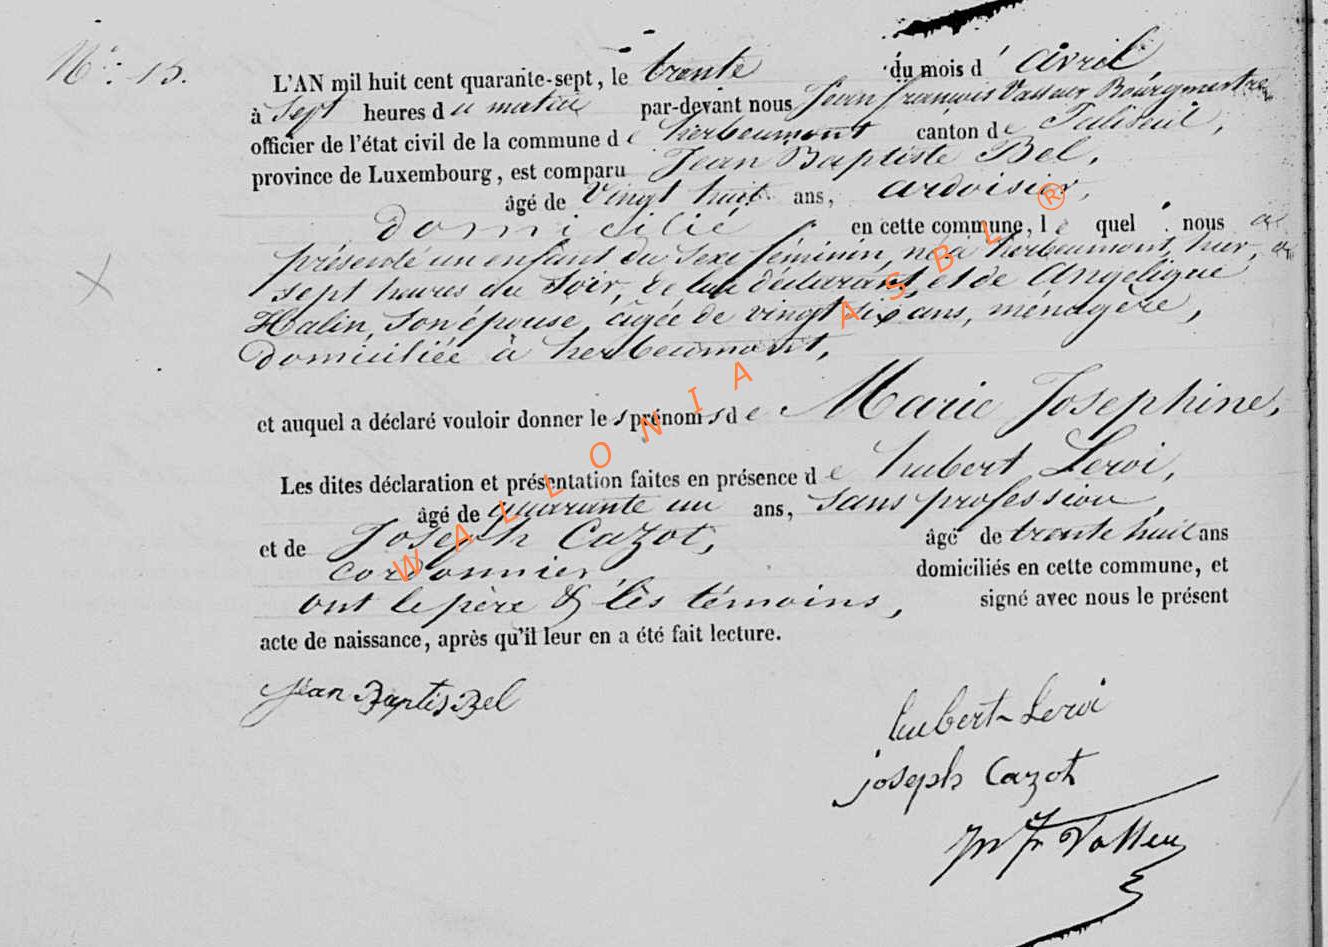 N° 15.
L'AN mil huit cent quarante-sept, le trente du mois d'avril
à sept heures du matin par-devant nous Jean françois Vasseur Bourgmestre
officier de l'état civil de la commune de herbeumont canton de Paliseul,
province de Luxembourg, est comparu Jean Baptiste Bel,
âgé de vingt huit ans, ardoisier,
domicilié en cette commune, lequel nous a
présenté un enfant du sexe féminin, né a herbeumont, hier, a
sept heures du soir, de lui déclarant, et de Angelique
Halin, son épouse, agée de vingt six ans, ménagère,
domiciliée à herbeumont,
et auquel a déclaré vouloir donner les prénoms de Marie Josephine,
Les dites déclaration et présentation faites en présence de hubert Leroi,
âgé de quarante un ans, sans profession,
et de Joseph Cazot, âgé de trente huit ans
cordonnier, domiciliés en cette commune, et
ont le père & les témoins, signé avec nous le présent
acte de naissance, après qu'il leur en a été fait lecture.
jean Baptis Bel
hubert Leroi
joseph Cazot
WALLONIA ASBL ®